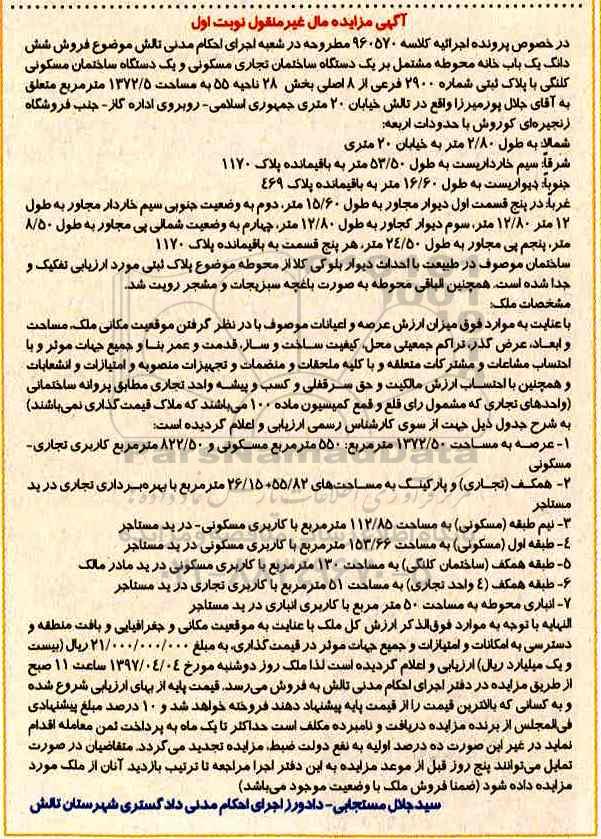 آگهی مزایده مال غیرمنقول نوبت اول
در خصوص پرونده اجرائیه کلاسه ۹۶۰۵۷۰ مطروحه در شعبه اجرای احکام مدنی تالش موضوع فروش شش
دانگ یک باب خانه محوطه مشتمل بر یک دستگاه ساختمان تجاری مسکونی و یک دستگاه ساختمان مسکونی
کلنگی با پلاک ثبتی شماره ۲۹۰۰ فرعی از ۸ اصلی بخش ۲۸ ناحیه ۵۵ به مساحت ۱۳۷۲/۵ مترمربع متعلق
به آقای جلال پورمیرزا واقع در تالش خیابان ۲۰ متری جمهوری اسلامی- روبروی اداره گاز- جنب فروشگاه
زنجیره‌ای کوروش با حدودات اربعه:
شمالا: به طول ۲/۸۰ متر به خیابان ۲۰ متری
شرقاً: سیم خارداریست به طول ۵۳/۵۰ متر به باقیمانده پلاک ۱۱۷۰
جنوباً: دیواریست به طول ۱۶/۶۰ متر به باقیمانده پلاک ۴۶۹
غرباً: در پنج قسمت اول دیوار مجاور به طول ۱۵/۶۰ متر، دوم به وضعیت جنوبی سیم خاردار مجاور به طول
۱۲ متر ۱۲/۸۰ متر، سوم دیوار کجاور به طول ۱۲/۸۰ متر، چهارم به وضعیت شمالی پی مجاور به طول ۸/۵۰
متر، پنجم پی مجاور به طول ۲۴/۵۰ متر، هر پنج قسمت به باقیمانده پلاک ۱۱۷۰
ساختمان موصوف در طبیعت با احداث دیوار بلوکی کلا از محوطه موضوع پلاک ثبتی مورد ارزیابی تفکیک و
جدا شده است. همچنین الباقی محوطه به صورت باغچه سبزیجات و مشجر رویت شد.
مشخصات ملک:
با عنایت به موارد فوق میزان ارزش عرصه و اعیانات موصوف با در نظر گرفتن موقعیت مکانی ملک، مساحت
و ابعاد، عرض گذر، تراکم جمعیتی محل، کیفیت ساخت و ساز، قدمت و عمر بنا و جمیع جهات موثر و با
احتساب مشاعات و مشترکات متعلقه و با کلیه ملحقات و منضمات و تجهیزات منصوبه و امتیازات و انشعابات
و همچنین با احتساب ارزش مالکیت و حق سرقفلی و کسب و پیشه واحد تجاری مطابق پروانه ساختمانی
(واحدهای تجاری که مشمول رای قلع و قمع کمیسیون ماده ۱۰۰ می‌باشند که ملاک قیمت گذاری نمی‌باشند)
به شرح جدول ذیل جهت از سوی کارشناس رسمی ارزیابی و اعلام گردیده است:
۱- عرصه به مساحت ۱۳۷۲/۵۰ مترمربع: ۵۵۰ مترمربع مسکونی و ۸۲۲/۵۰ مترمربع کاربری تجاری-
مسکونی
۲- همکف (تجاری) و پارکینگ به مساحت‌های ۵۵/۸۲+۲۶/۱۵ متر مربع با بهره‌برداری تجاری در ید
مستاجر
۳- نیم طبقه (مسکونی) به مساحت ۱۱۲/۸۵ مترمربع با کاربری مسکونی- در ید مستاجر
۴- طبقه اول (مسکونی) به مساحت ۱۵۳/۶۶ مترمربع با کاربری مسکونی در ید مستاجر
۵- طبقه همکف (ساختمان کلنگی) به مساحت ۱۳۰ مترمربع با کاربری مسکونی در ید مادر مالک
۶- طبقه همکف (۴ واحد تجاری) به مساحت ۵۱ مترمربع با کاربری تجاری در ید مستاجر
۷- انباری محوطه به مساحت ۵۰ متر مربع با کاربری انباری در ید مستاجر
النهایه با توجه به موارد فوق‌الذکر ارزش کل ملک با عنایت به موقعیت مکانی و جغرافیایی و بافت منطقه و
دسترسی به امکانات و امتیازات و جمیع جهات موثر در قیمت‌گذاری، به مبلغ ۲۱/۰۰۰/۰۰۰/۰۰۰ ریال (بیست
و یک میلیارد ریال) ارزیابی و اعلام گردیده است لذا ملک روز دوشنبه مورخ ۱۳۹۷/۰۴/۰۴ ساعت ۱۱ صبح
از طریق مزایده در دفتر اجرای احکام مدنی تالش به فروش می‌رسد. قیمت پایه از بهای ارزیابی شروع شده
و به کسانی که بالاترین قیمت را از قیمت پایه پیشنهاد دهند فروخته خواهد شد و ۱۰ درصد مبلغ پیشنهادی
فی‌المجلس از برنده مزایده دریافت و نامبرده مکلف است حداکثر تا یک ماه به پرداخت ثمن معامله اقدام
نماید در غیر این صورت ده درصد اولیه به نفع دولت ضبط، مزایده تجدید می‌گردد. متقاضیان در صورت
تمایل می‌توانند پنج روز قبل از موعد مزایده به این دفتر اجرا مراجعه تا ترتیب بازدید آنان از ملک مورد
مزایده داده شود (ضمنا فروش ملک با وضعیت موجود می‌باشد)
سیدجلال مستجابی- دادورز اجرای احکام مدنی دادگستری شهرستان تالش